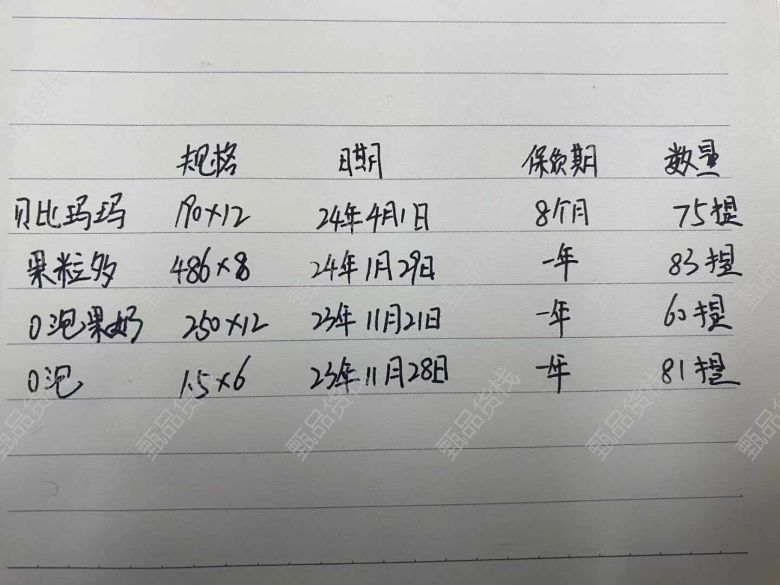 规格 日期 保质期 数量
贝比玛玛 190×12 24年4月1日 8个月 75提
果粒多 486×8 24年1月29日 一年 83提
O泡果奶 250×12 23年11月21日 一年 60提
O泡 1.5×6 23年11月28日 一年 81提
甄品货栈